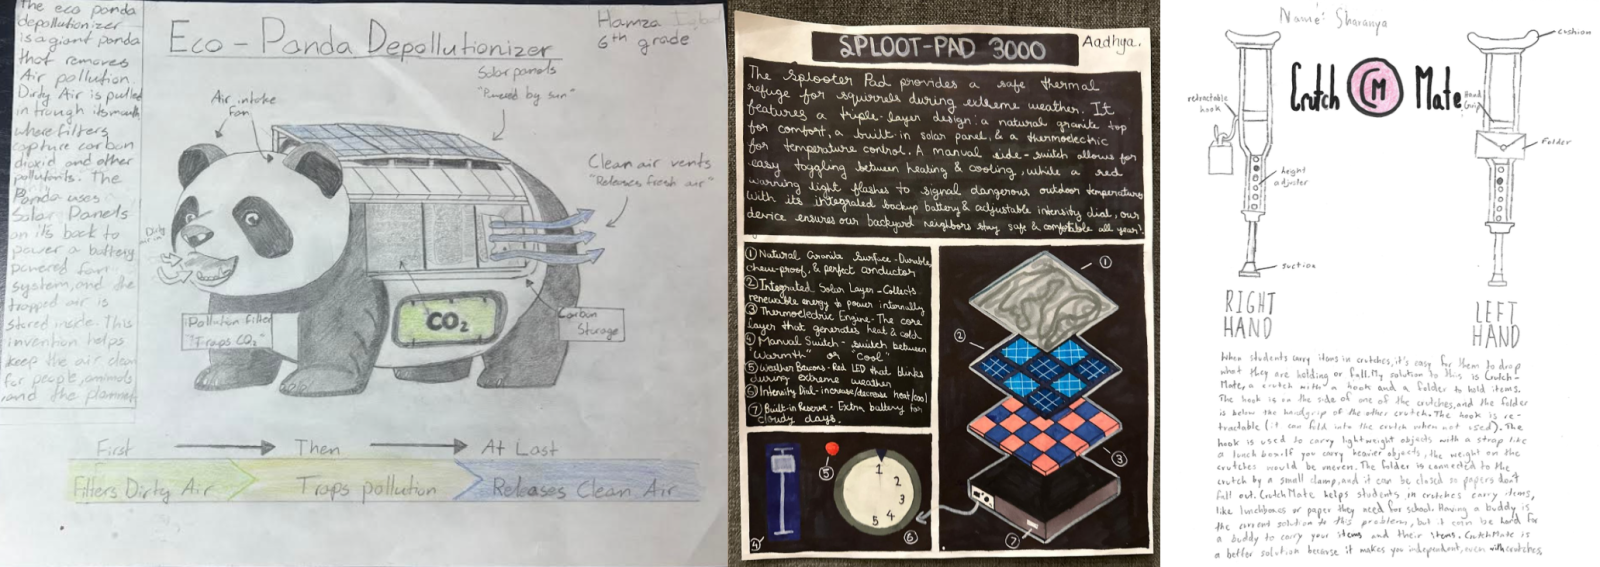 The eco panda
depollutionizer
is a giant panda
that removes
Air pollution.
Dirty Air is pulled
in trough its mouth
where filters
capture carbon
dioxid and other
pollutants. The
Panda uses
Solar Panels
on its back to
power a battery
powered fan
system, and the
trapped air is
stored inside. This
invention helps
keep the air clean
for people, animals
and the planet
Eco-Panda Depollutionizer
Hamza Iqbal
6th grade
Solar panels
"Powered by sun"
Air intake
Fan
Clean air vents
"Releases fresh air"
Dirty
air in
Pollution filter
"Traps CO2"
CO2
Carbon
Storage
First
Then
At Last
Filters Dirty Air
Traps pollution
Releases Clean Air
SPLOOT-PAD 3000
Aadhya.
The Splooter Pad provides a safe thermal
refuge for squirrels during extreme weather. It
features a triple-layer design: a natural granite top
for comfort, a built in solar panel, & a thermoelectric
for temperature control. A manual side-switch allows for
easy toggling between heating & cooling, while a red
warning light flashes to signal dangerous outdoor temperatures
With its integrated backup battery & adjustable intensity dial, our
device ensures our backyard neighbors stay safe & comfortable all year!
① Natural Granite Surface - Durable,
chew-proof, & perfect conductor
② Integrated Solar Layer - Collects
renewable energy to power internally
③ Thermoelectric Engine - The core
layer that generates heat & cold
④ Manual Switch - switch between
"Warmth" or "Cool"
⑤ Weather Beacons - Red LED that blinks
during extreme weather
⑥ Intensity Dial - increase/decrease heat/cool
⑦ Built-in Reserve - Extra battery for
cloudy days.
①
②
③
⑦
④
⑤
1
2
3
4
5
⑥
Name: Sharanya
Crutch CM Mate
retractable
hook
height
adjuster
suction
cushion
Hand
Grip
Folder
RIGHT
HAND
LEFT
HAND
When students carry items in crutches, it's easy for them to drop
what they are holding or fall. My solution to this is Crutch-
Mate, a crutch with a hook and a folder to hold items.
The hook is on the side of one of the crutches, and the folder
is below the handgrip of the other crutch. The hook is re-
tractable (it can fold into the crutch when not used). The
hook is used to carry lightweight objects with a strap like
a lunch box. If you carry heavier objects, the weight on the
crutches would be uneven. The folder is connected to the
crutch by a small clamp, and it can be closed so papers don't
fall out. CrutchMate helps students in crutches carry items,
like lunchboxes or paper they need for school. Having a buddy is
the current solution to this problem, but it can be hard for
a buddy to carry your items and their items. CrutchMate is
a better solution because it makes you independent, even with crutches.